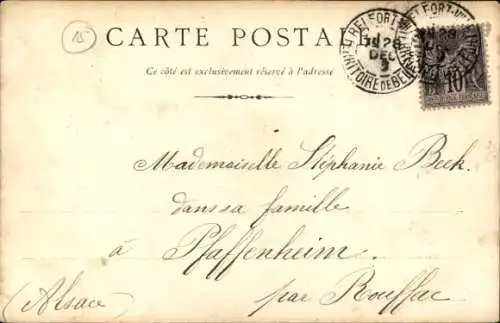 15
CARTE POSTALE
Ce côté est exclusivement réservé à l'adresse
BELFORT-VILLE
28
DEC
TERRITOIRE DE BELFORT
10
Mademoiselle Stéphanie Beck.
dans sa famille
à Pfaffenheim
(Alsace) par Rouffac